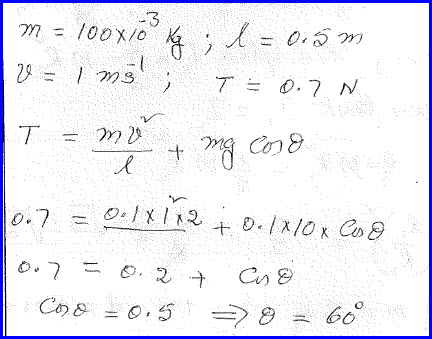 m = 100×10⁻³ Kg ; l = 0.5 m
v = 1 ms⁻¹ ; T = 0.7 N
T = mv²/l + mg Cosθ
0.7 = 0.1×1²×2 + 0.1×10× Cosθ
0.7 = 0.2 + Cosθ
Cosθ = 0.5 ⟹ θ = 60°